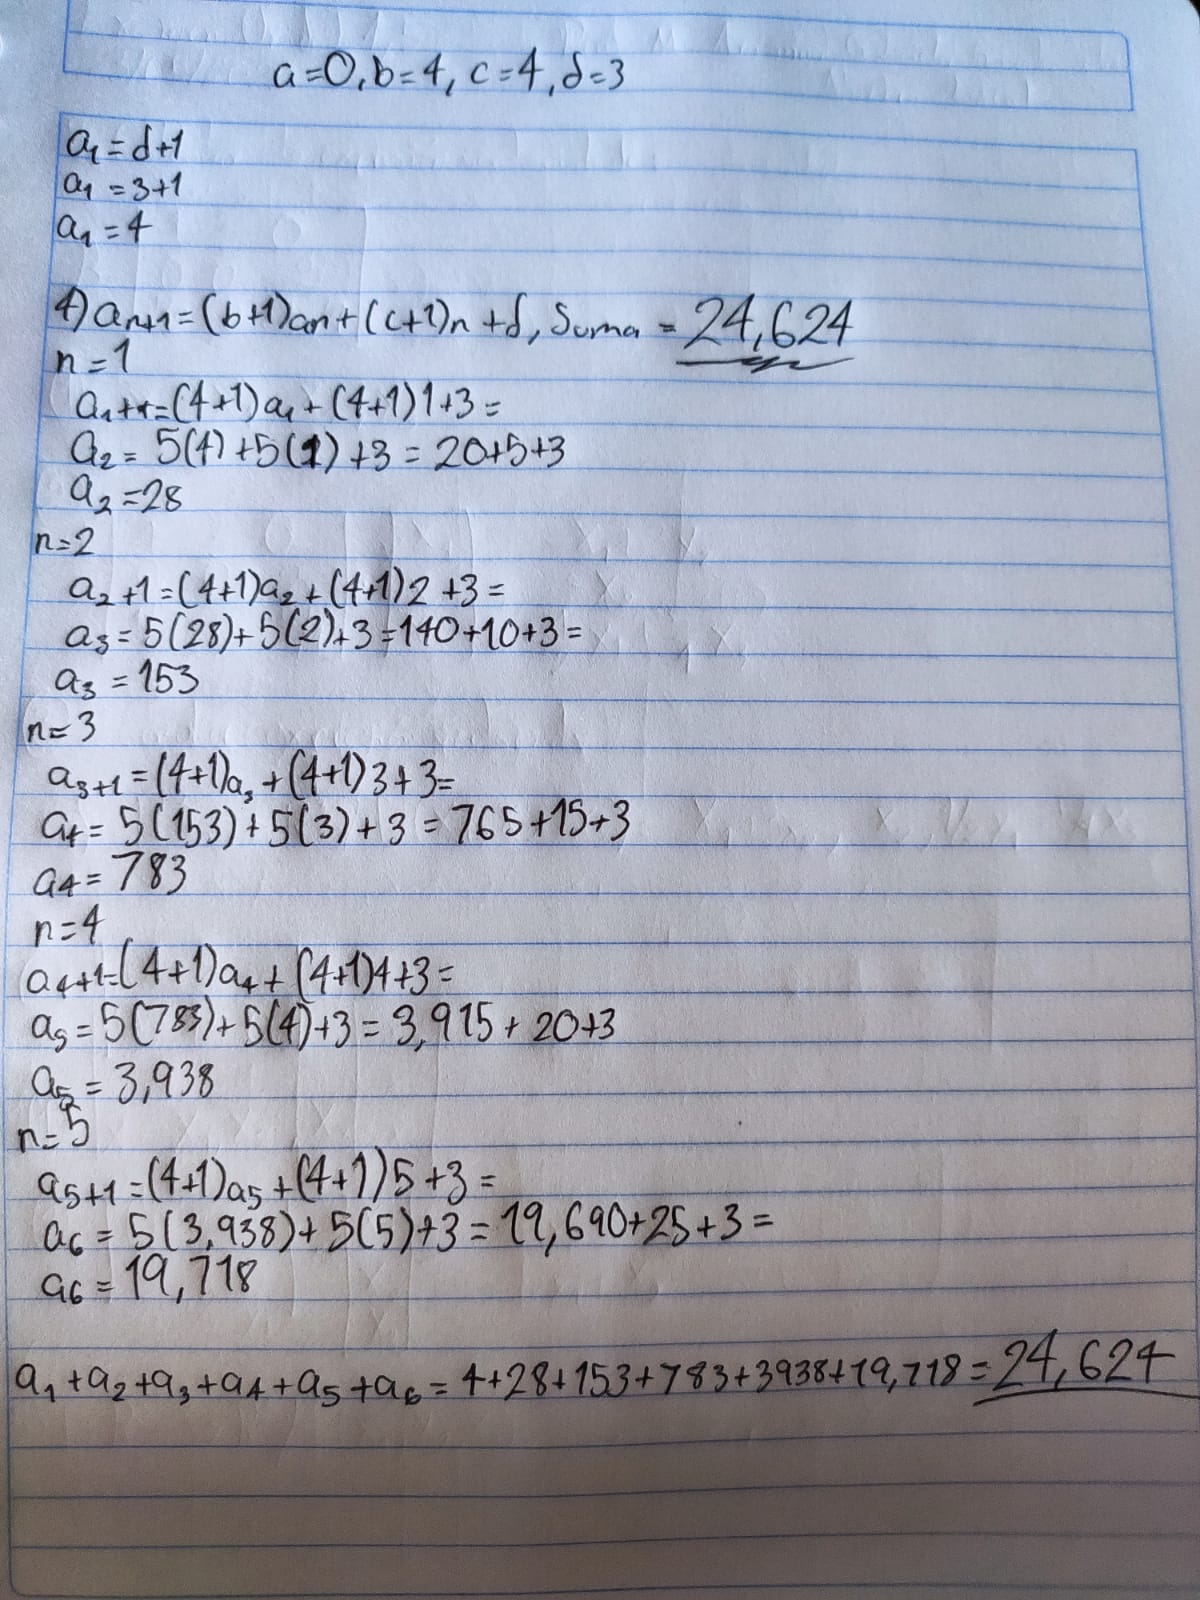 a=0, b=4, c=4, d=3
a₁=d+1
a₁=3+1
a₁=4
4) aₙ₊₁=(b+1)aₙ+(c+1)n+d, Suma = 24,624
n=1
a₁₊₁=(4+1)a₁+(4+1)1+3=
a₂= 5(4)+5(1)+3=20+5+3
a₂=28
n=2
a₂+1=(4+1)a₂+(4+1)2+3=
a₃=5(28)+5(2)+3=140+10+3=
a₃=153
n=3
a₃₊₁=(4+1)a₃+(4+1)3+3=
a₄= 5(153)+5(3)+3=765+15+3
a₄=783
n=4
a₄+1=(4+1)a₄+(4+1)4+3=
a₅=5(783)+5(4)+3=3,915+20+3
a₅=3,938
n=5
a₅₊₁=(4+1)a₅+(4+1)5+3=
a₆=5(3,938)+5(5)+3=19,690+25+3=
a₆=19,718
a₁+a₂+a₃+a₄+a₅+a₆=4+28+153+783+3938+19,718=24,624